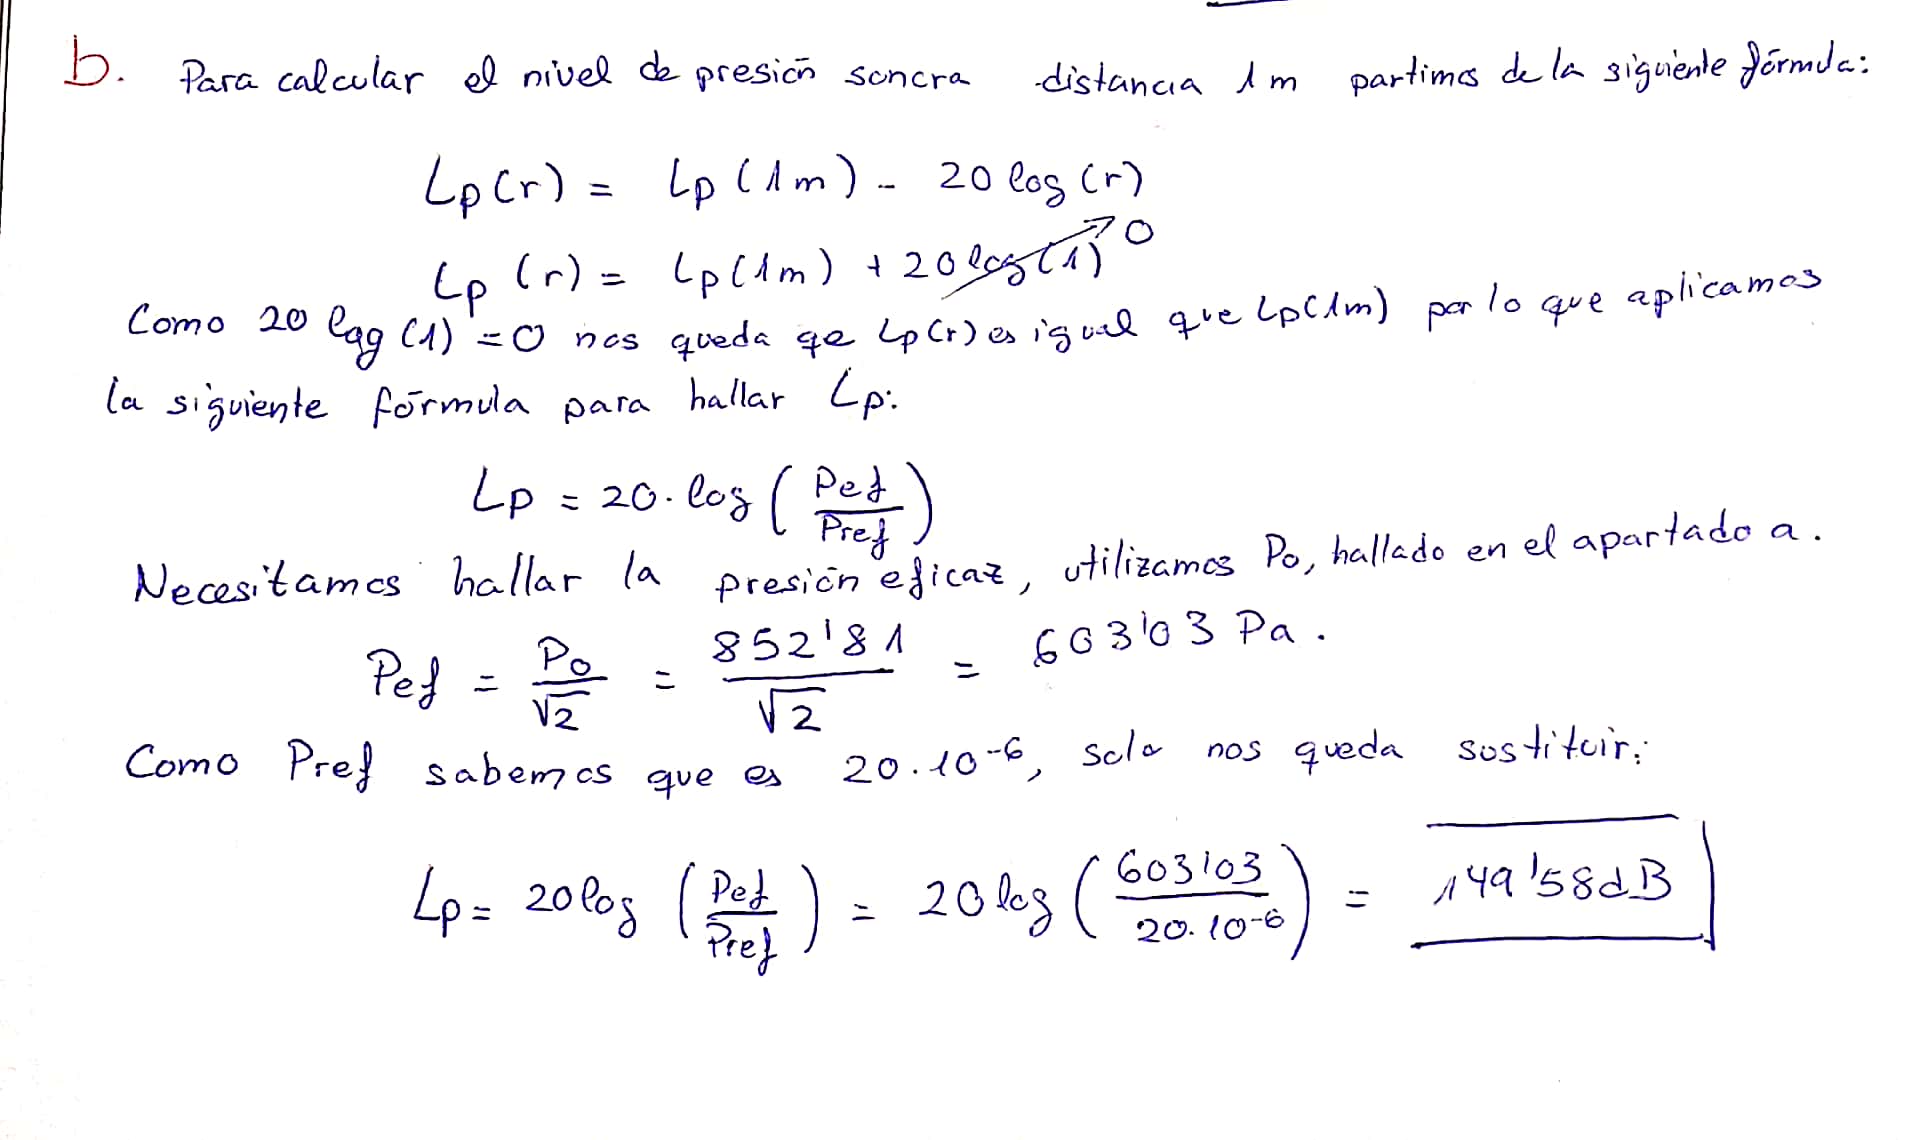 b. Para calcular el nivel de presión sonora distancia 1m partimos de la siguiente fórmula:
Lp(r) = Lp(1m) - 20 log (r)
Lp(r) = Lp(1m) + 20 log(1) → 0
Como 20 log (1) = 0 nos queda qe Lp(r) es igual que Lp(1m) por lo que aplicamos
la siguiente fórmula para hallar Lp:
Lp = 20 · log (Pef / Pref)
Necesitamos hallar la presión eficaz, utilizamos Po, hallado en el apartado a.
Pef = Po / √2 = 852'81 / √2 = 603'03 Pa.
Como Pref sabemos que es 20·10⁻⁶, solo nos queda sustituir:
Lp = 20 log (Pef / Pref) = 20 log (603'03 / 20·10⁻⁶) = 149'58dB